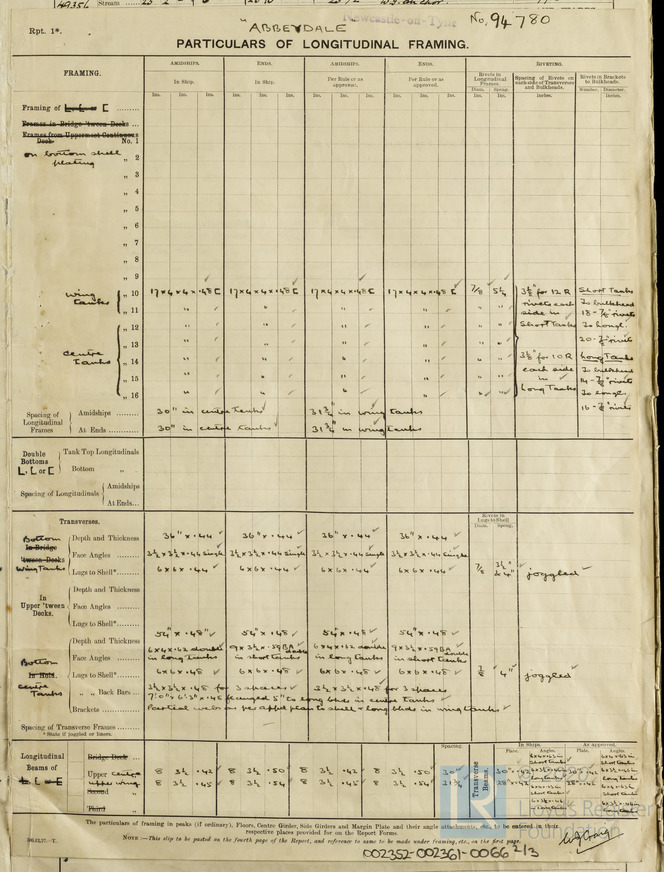 49356
Newcastle-on-Tyne
Rpt. 1*.
"ABBEYDALE
No. 94780
PARTICULARS OF LONGITUDINAL FRAMING.
FRAMING.
AMIDSHIPS. ENDS. AMIDSHIPS. ENDS. RIVETING.
In Ship. In Ship. Per Rule or as approved. Per Rule or as approved.
Rivets in Longitudinal Frames. Spacing of Rivets on each side of Transverses and Bulkheads. Rivets in Brackets to Bulkheads.
Ins. Ins. Ins. Ins. Ins. Ins. Ins. Ins. Ins. Ins. Ins. Ins. Diam. Ins. Spcng. Ins. Inches. Number. Diameter. Inches.
Framing of L, L or [
Frames in Bridge 'tween Decks ...
Frames from Uppermost Continuous Deck No. 1
on bottom shell plating
„ 2
„ 3
„ 4
„ 5
„ 6
„ 7
„ 8
„ 9
wing tanks
„ 10 17×4×4×.48[ 17×4×4×.48[ 17×4×4×.48[ 17×4×4×.48[ 7/8 5¼ 3½" for 12 R Short Tanks
„ 11 rivets each side in To bulkhead 18-7/8" rivets
„ 12 Short Tanks To longl.
„ 13 20-7/8" rivets
centre tanks
„ 14 3½" for 10 R Long Tanks
„ 15 each side in To bulkhead 14-7/8" rivets
„ 16 Long Tanks To longl.
16-7/8" rivets
Spacing of Longitudinal Frames
Amidships 30" in centre tanks 31¾" in wing tanks
At Ends 30" in centre tanks 31¾" in wing tanks
Double Bottoms L, L or [
Tank Top Longitudinals
Bottom „
Spacing of Longitudinals
Amidships
At Ends...
Transverses.
Rivets in Lugs to Shell
Diam. Spcng.
Bottom
In Bridge 'tween Decks
Wing Tanks
Depth and Thickness 36" × .44 36" × .44 36" × .44 36" × .44
Face Angles 3½×3½×.44 single 3½×3½×.44 single 3½×3½×.44 single 3½×3½×.44 single
Lugs to Shell* 6×6×.44 6×6×.44 6×6×.44 6×6×.44 7/8 joggled
In Upper 'tween Decks.
Depth and Thickness
Face Angles
Lugs to Shell*
Bottom
In Holds.
Centre Tanks
Depth and Thickness 54" × .48" 54" × .48 54" × .48 54" × .48
Face Angles 6×4×.62 double in long tanks 9×3½×.59 BA double in short tanks 6×4×.62 double in long tanks 9×3½×.59 BA double in short tanks
Lugs to Shell* 6×6×.48 6×6×.48 6×6×.48 6×6×.48 4" joggled
„ „ Back Bars ... 3½×3½×.48 for 3 spaces 3½×3½×.48 for 3 spaces
Brackets
Spacing of Transverse Frames
* State if joggled or liners.
Longitudinal Beams of L, L or [
Spacing. Transverse Beams. In Ships. As Approved.
Plate. Angles. Plate. Angles.
Bridge Deck ...
Upper centre 8 3½ .42 8 3½ .50 8 3½ .42 8 3½ .50 30"
upper wing 8 3½ .45 8 3½ .54 8 3½ .45 8 3½ .54 31¾
Second
Third
Lloyd's Register Foundation
The particulars of framing in peaks (if ordinary), Floors, Centre Girder, Side Girders and Margin Plate and their angle attachments, etc., to be entered in their respective places provided for on the Report Forms.
NOTE :—This slip to be pasted on the fourth page of the Report, and reference to same to be made under framing, etc., on the first page.
002352-002361-0066 2/3